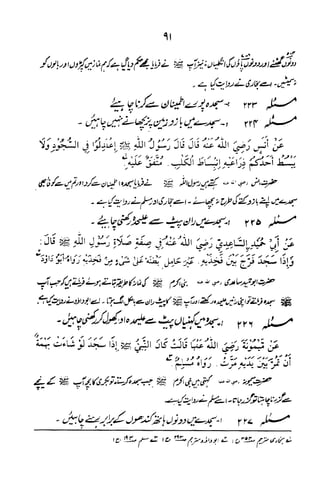 ۹۱
دونوں گھٹنے اور دونوں پاؤں کی انگلیاں، نیز آپ ﷺ نے فرمایا مجھے حکم دیا گیا ہے کہ ہم نماز میں کپڑوں اور بالوں کو
نہ سمیٹیں۔ اسے بخاری نے روایت کیا ہے۔
مسئلہ ۲۲۳ سجدہ پورے اطمینان سے کرنا چاہئے
مسئلہ ۲۲۴ سجدے میں بازو زمین پر بچھانے نہیں چاہئیں۔
عَنْ أَنَسٍ رَضِيَ اللهُ عَنْهُ قَالَ قَالَ رَسُوْلُ اللهِ ﷺ إِعْتَدِلُوْا فِي السُّجُوْدِ وَلَا
يَبْسُطْ أَحَدُكُمْ ذِرَاعَيْهِ إِنْبِسَاطَ الْكَلْبِ. مُتَّفَقٌ عَلَيْهِ
حضرت انس کہتے ہیں رسول اللہ ﷺ نے فرمایا سجدہ اطمینان سے کرو اور تم میں سے کوئی بھی
سجدے میں اپنے بازو کتے کی طرح نہ بچھائے۔ اسے بخاری اور مسلم نے روایت کیا ہے۔
مسئلہ ۲۲۵ سجدے میں ران پیٹ سے علیحدہ رکھنی چاہئے۔
عَنْ أَبِيْ حُمَيْدِ السَّاعِدِيِّ رَضِيَ اللهُ عَنْهُ فِيْ صِفَةِ صَلَاةِ رَسُوْلِ اللهِ ﷺ قَالَ:
وَإِذَا سَجَدَ فَرَّجَ بَيْنَ فَخِذَيْهِ غَيْرَ حَامِلٍ بَطْنَهُ عَلَى شَيْءٍ مِنْ فَخِذَيْهِ. رَوَاهُ أَبُوْ دَاوُدَ
حضرت ابو حمید ساعدی نبی اکرم ﷺ کی نماز کا طریقہ بتاتے ہوئے فرماتے ہیں کہ جب آپ
سجدہ فرماتے تو اپنی رانیں علیحدہ رکھتے اور آپ ﷺ کا پیٹ ران سے بالکل الگ ہوتا۔ اسے ابوداؤد نے روایت کیا ہے۔
مسئلہ ۲۲۶ سجدہ میں کہنیاں پیٹ سے علیحدہ اور کھول کر رکھنی چاہئیں۔
عَنْ مَيْمُوْنَةَ رَضِيَ اللهُ عَنْهَا قَالَتْ كَانَ النَّبِيُّ ﷺ إِذَا سَجَدَ لَوْ شَاءَتْ بَهْمَةٌ
أَنْ تَمُرَّ بَيْنَ يَدَيْهِ مَرَّتْ. رَوَاهُ مُسْلِمٌ
حضرت میمونہ کہتی ہیں نبی اکرم ﷺ جب سجدہ کرتے تو بکری کا بچہ آپ ﷺ کے نیچے
سے گزرنا چاہتا تو گزر جاتا۔ اسے مسلم نے روایت کیا ہے۔
مسئلہ ۲۲۷ سجدے میں دونوں ہاتھ کندھوں کے برابر رہنے چاہئیں۔